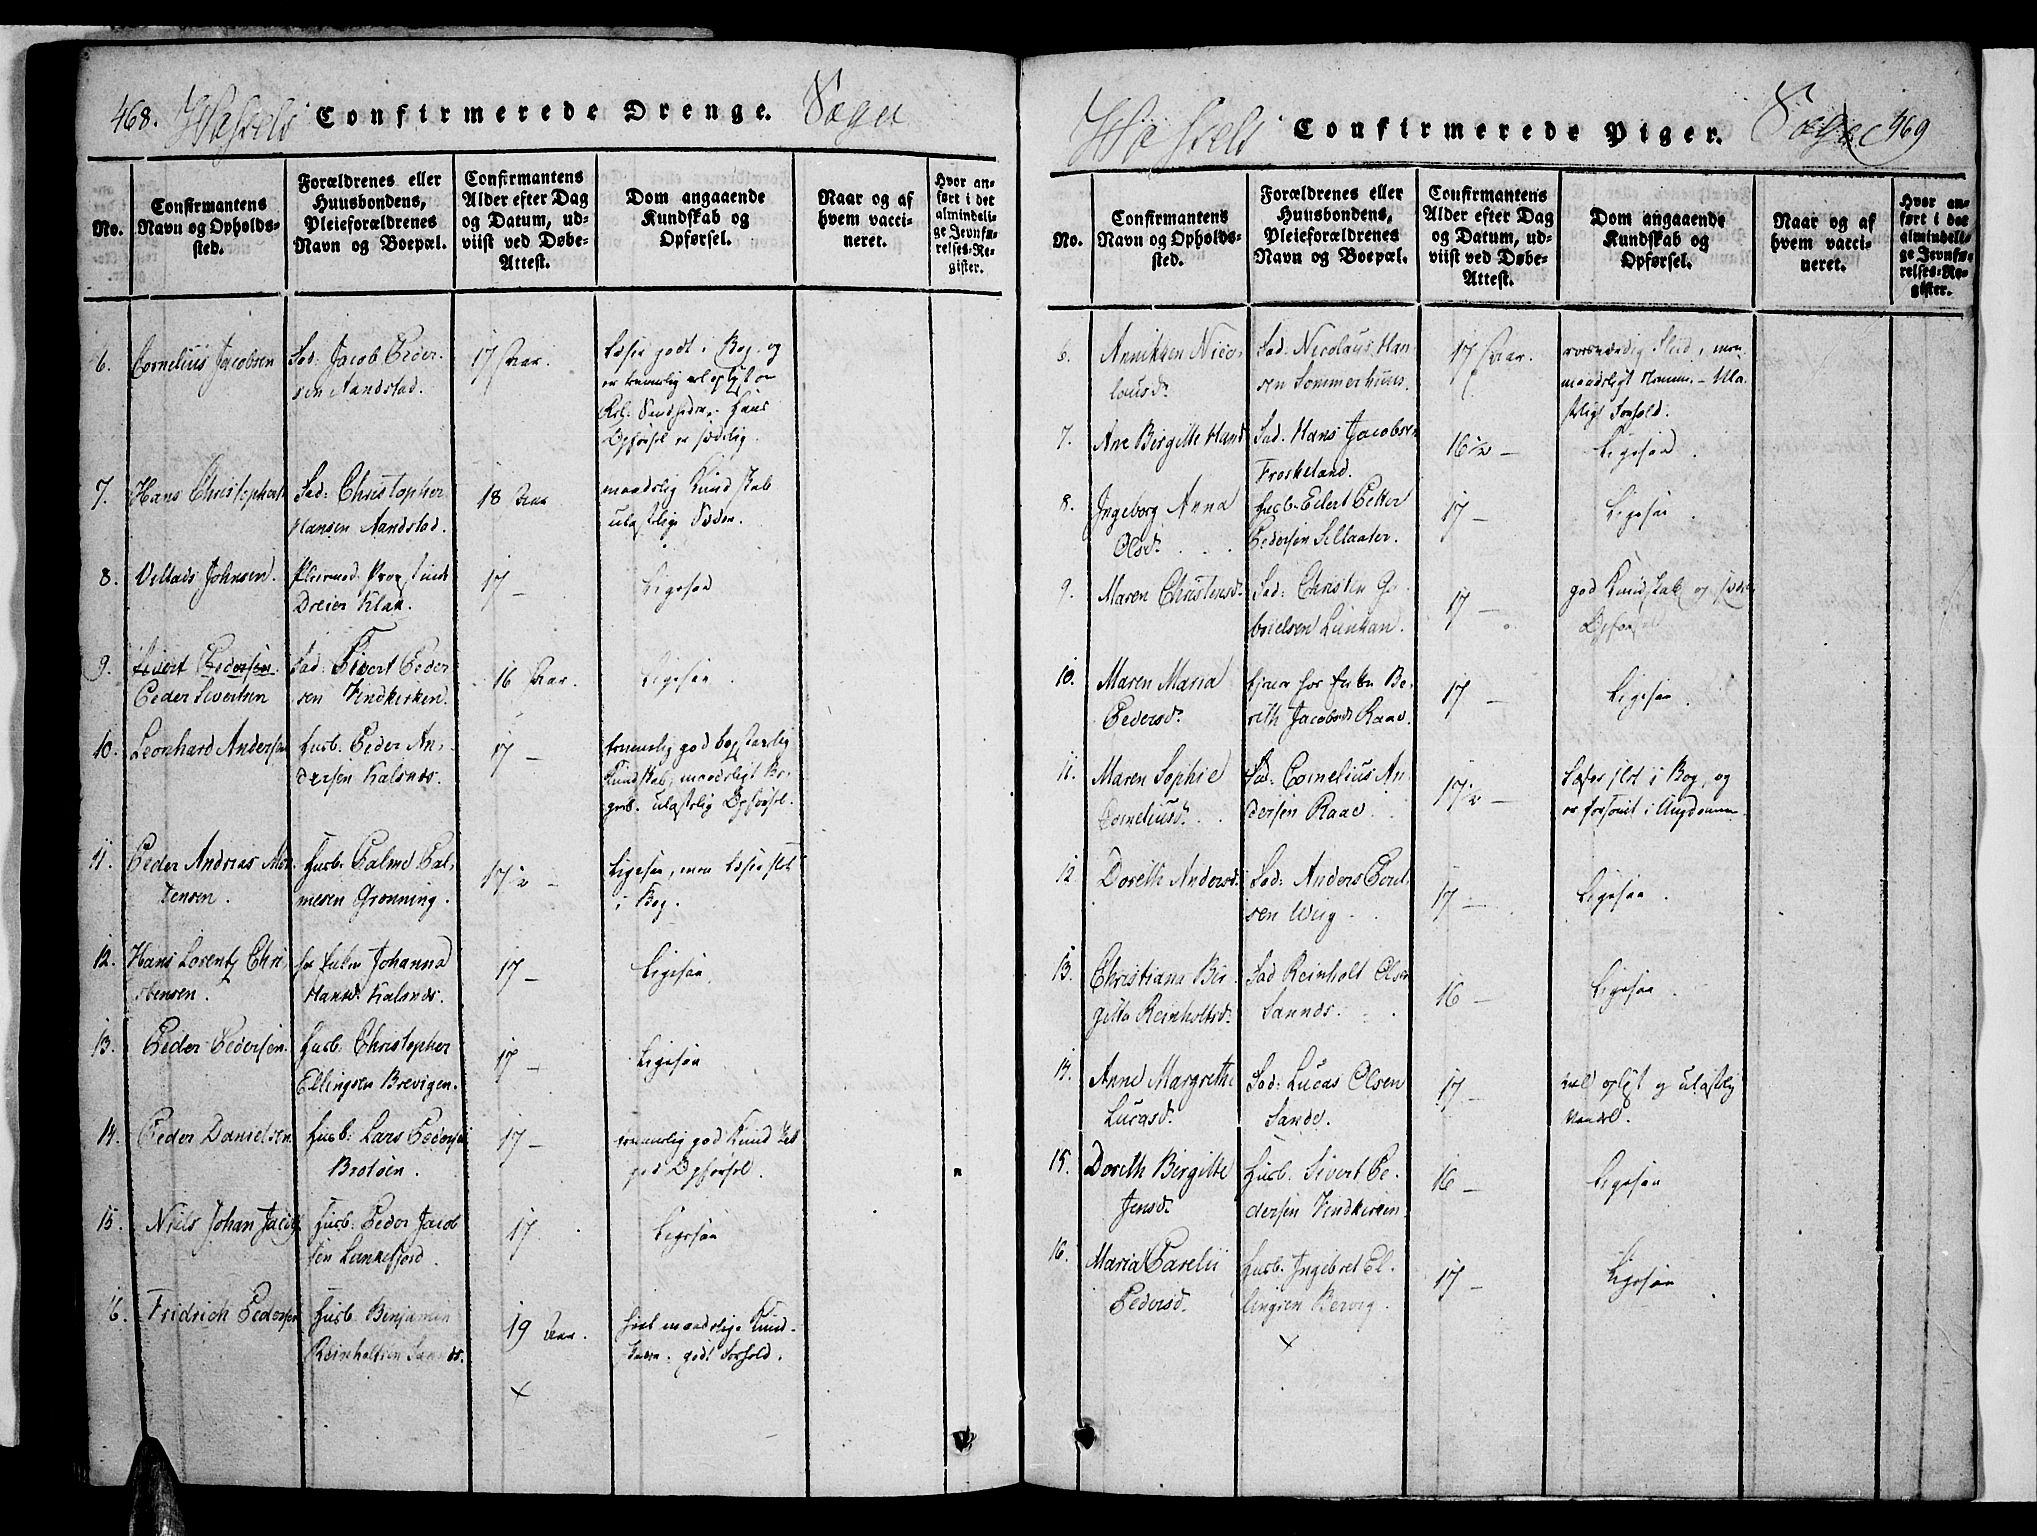 468. Hassels Confirmerede Drenge. Sogn
No.
Confirmantens Navn og Opholds-sted.
Forældrenes eller Huusbondens, Pleieforældrenes Navn og Boepæl.
Confirmantens Alder efter Dag og Datum, ud-viist ved Døbe-Attest.
Dom angaaende Kundskab og Opførsel.
Naar og af hvem vacci-neret.
Hvor an-ført i det almindeli-ge Jevnfø-relses-Re-gister.
6. Cornelius Jacobsen
Fad: Jacob Peder-
sen Aandstad.
17 Aar.
Læser godt i Bog, og
er temmelig vel oplyst om
Rel. Hans
Opførsel er sædelig.
7. Hans Christophers
Fad: Christopher
Hansen Aandstad.
18 Aar
maadelig Kundskab
ulastelige Sæder.
8. Villads Johnsen.
Pleiemod. Provstinde
Dreier Klak.
17 –
Ligesaa
9. Sivert Pedersen
Peder Sivertsen
Fad: Sivert Peder-
sen Vindkirken.
16 Aar.
Ligesaa
10. Leonhard Andersen
Husb. Peder An-
dersen Kalsnes.
17 –
temmelig god bogstavelig
Kundskab, maadeligt Be-
greb. ulastelig Opførsel.
11. Peder Andreas Mor-
tensen.
Husb. Palme Pal-
mesen Grønning.
17½ –
Ligesaa, men læser slet
i Bog.
12. Hans Lorentz Chri-
stensen.
Johanna
Hansd. Kalsnes.
17 –
Ligesaa
13. Peder Pedersen.
Husb. Christopher
Ellingsen Brevigen.
17 –
Ligesaa
14. Peder Danielsen
Husb: Lars Pedersen
Brotøen.
17 –
temmelig god Kundskab
god Opførsel.
15. Niels Johan Jacobs.
Husb: Peder Jacob
sen Lunkefjord.
17.
Ligesaa
16. Fridrich Pedersen
Husb Benjamin
Reinholtsen Sannes.
19 Aar.
heel maadelige Kund-
skaber. godt Forhold.
×
Hassels Confirmerede Piger. Sogn 469
No.
Confirmantens Navn og Opholds-sted.
Forældrenes eller Huusbondens, Pleieforældrenes Navn og Boepæl.
Confirmantens Alder efter Dag og Datum, ud-viist ved Døbe-Attest.
Dom angaaende Kundskab og Opførsel.
Naar og af hvem vacci-neret.
Hvor an-ført i det almindeli-ge Jevnfø-relses-Re-gister.
6. Anniksen Nico-
lausd.
Fad. Nicolaus Han-
sen Sommerhuus.
17 Aar.
roesværdig Flid, men
maadeligt Nemme. – Ula-
steligt Forhold.
7. Ane Birgitte Hansd
Fad. Hans Jacobsen
Froskeland.
16½ –
Ligesaa
8. Ingeborg Anna
Olsd.
Husb. Eilert Petter
Pedersen Sellaater.
17 –
Ligesaa
9. Maren Christensd.
Fad: Christen Ga-
brielsen Lunkan.
17 –
god Kundskab og
Opførsel
10. Maren Maria
Pedersd.
tjener hos Enken Be-
rith Jacobsd. Raae.
17 –
Ligesaa
11. Maren Sophie
Corneliusd.
Fad. Cornelius An-
dersen Raae.
17½ –
Læser slet i Bog, og
er forsømt i Ungdommen.
12 Dorith Andersd.
Fad: Anders Poul-
sen Weig.
17 –
Ligesaa
13. Christiana Bir-
gitta Reinholtsd.
Fad Reinholt Olsen
Sannes.
16 –
Ligesaa
14. Anne Margrethe
Lucasd.
Fad: Lucas Olsen
Sande.
17 –
vel oplyst og ulastelig
Vandel.
15. Dorith Birgitte
Jensd.
Husb. Sivert Pe-
dersen Vindkirken
16 –
Ligesaa
16. Maria Parelii
Pedersd.
Husb. Ingebret El-
lingsen Bervig.
17 –
Ligesaa
×